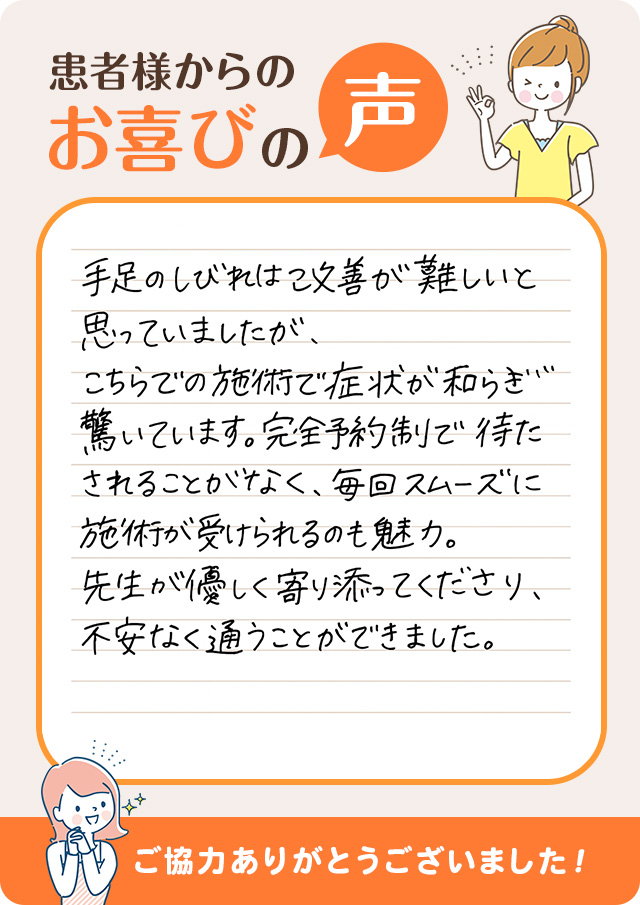 患者様からの
お喜びの声
手足のしびれは改善が難しいと
思っていましたが、
こちらでの施術で症状が和らぎ
驚いています。完全予約制で待た
されることがなく、毎回スムーズに
施術が受けられるのも魅力。
先生が優しく寄り添ってくださり、
不安なく通うことができました。
ご協力ありがとうございました!